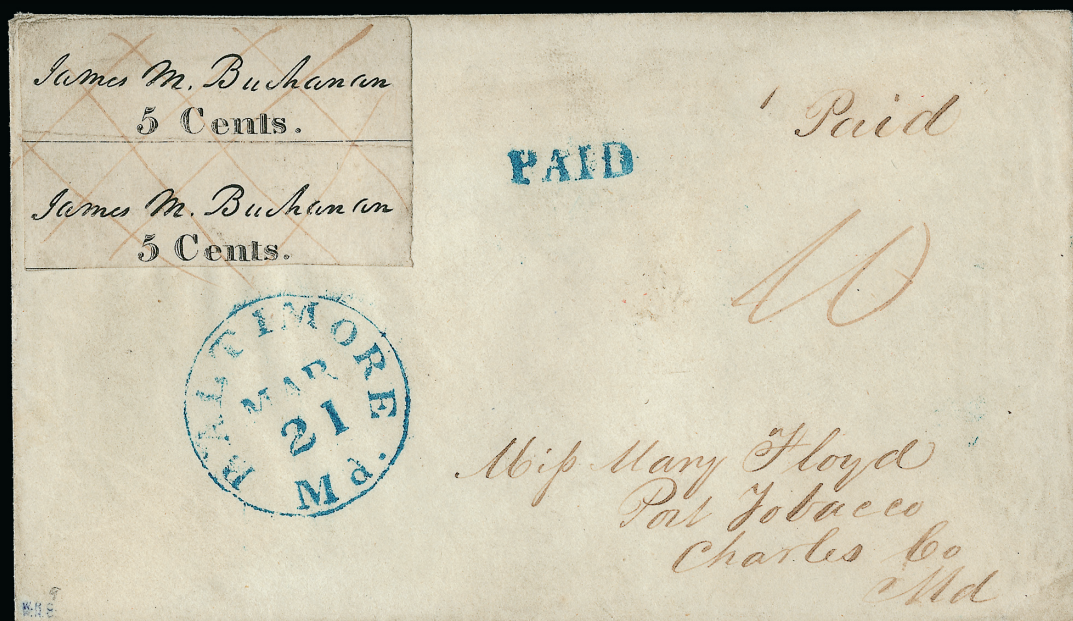 James M. Buchanan
5 Cents.
James M. Buchanan
5 Cents.
PAID
Paid
10
BALTIMORE Md.
MAR
21
Miſs Mary Floyd
Port Tobacco
Charles Co
Md